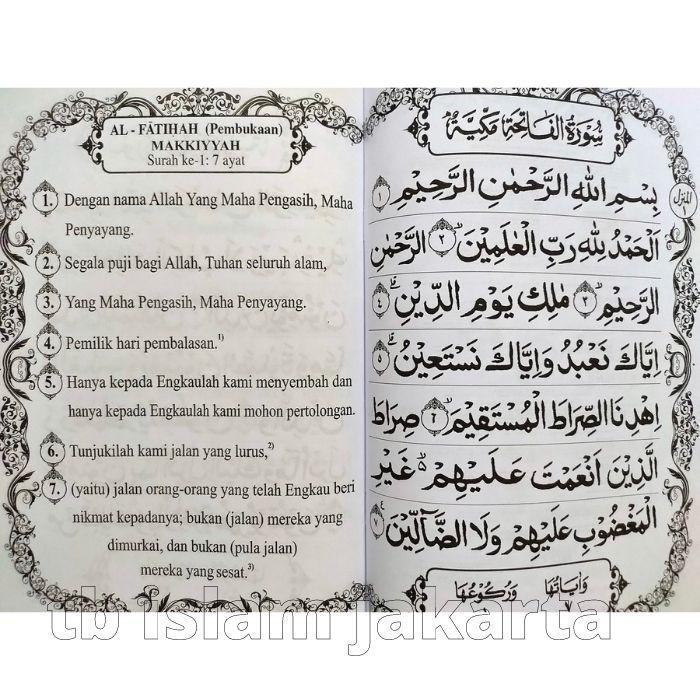 AL - FĀTIHAH (Pembukaan)
MAKKIYYAH
Surah ke-1: 7 ayat
1. Dengan nama Allah Yang Maha Pengasih, Maha
Penyayang.
2. Segala puji bagi Allah, Tuhan seluruh alam,
3. Yang Maha Pengasih, Maha Penyayang.
4. Pemilik hari pembalasan.1)
5. Hanya kepada Engkaulah kami menyembah dan
hanya kepada Engkaulah kami mohon pertolongan.
6. Tunjukilah kami jalan yang lurus,2)
7. (yaitu) jalan orang-orang yang telah Engkau beri
nikmat kepadanya; bukan (jalan) mereka yang
dimurkai, dan bukan (pula jalan)
mereka yang sesat.3)
سُوْرَةُ الْفَاتِحَةِ مَكِّيَّةٌ
المنزل ١
بِسْمِ اللهِ الرَّحْمٰنِ الرَّحِيْمِ ١
اَلْحَمْدُ لِلّٰهِ رَبِّ الْعٰلَمِيْنَۙ ٢ الرَّحْمٰنِ
الرَّحِيْمِۙ ٣ مٰلِكِ يَوْمِ الدِّيْنِۗ ٤
اِيَّاكَ نَعْبُدُ وَاِيَّاكَ نَسْتَعِيْنُۗ ٥
اِهْدِنَا الصِّرَاطَ الْمُسْتَقِيْمَۙ ٦ صِرَاطَ
الَّذِيْنَ اَنْعَمْتَ عَلَيْهِمْ ەۙ غَيْرِ
الْمَغْضُوْبِ عَلَيْهِمْ وَلَا الضَّاۤلِّيْنَ ٧
وَاٰيَاتُهَا ٧ وَرُكُوْعُهَا
tb islam jakarta